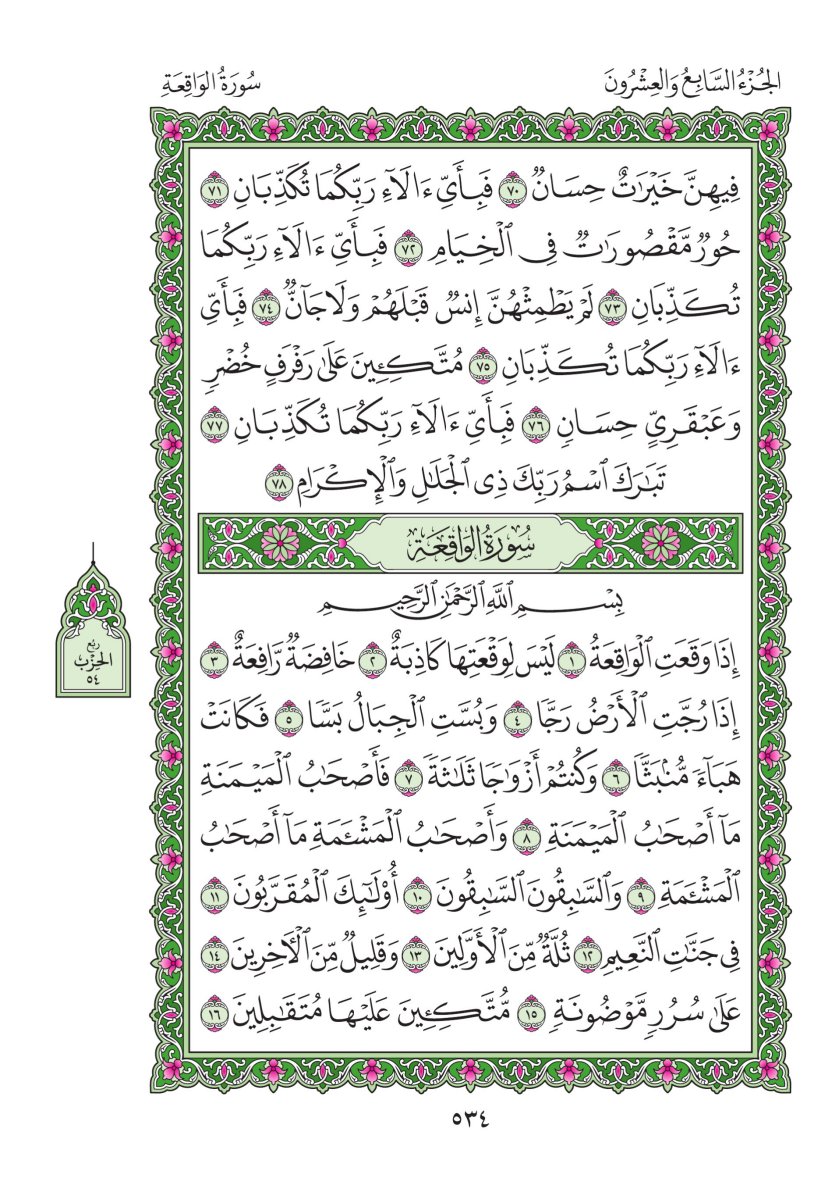 الجُزْءُ السَّابِعُ وَالعِشْرُونَ
سُورَةُ الوَاقِعَةِ
فِيهِنَّ خَيْرَٰتٌ حِسَانٌ ٧٠ فَبِأَيِّ ءَالَآءِ رَبِّكُمَا تُكَذِّبَانِ ٧١
حُورٌ مَّقْصُورَٰتٌ فِي ٱلْخِيَامِ ٧٢ فَبِأَيِّ ءَالَآءِ رَبِّكُمَا
تُكَذِّبَانِ ٧٣ لَمْ يَطْمِثْهُنَّ إِنسٌ قَبْلَهُمْ وَلَا جَآنٌّ ٧٤ فَبِأَيِّ
ءَالَآءِ رَبِّكُمَا تُكَذِّبَانِ ٧٥ مُتَّكِـِٔينَ عَلَىٰ رَفْرَفٍ خُضْرٍ
وَعَبْقَرِيٍّ حِسَانٍ ٧٦ فَبِأَيِّ ءَالَآءِ رَبِّكُمَا تُكَذِّبَانِ ٧٧
تَبَٰرَكَ ٱسْمُ رَبِّكَ ذِي ٱلْجَلَٰلِ وَٱلْإِكْرَامِ ٧٨
سُورَةُ الوَاقِعَةِ
بِسْمِ ٱللَّهِ ٱلرَّحْمَٰنِ ٱلرَّحِيمِ
إِذَا وَقَعَتِ ٱلْوَاقِعَةُ ١ لَيْسَ لِوَقْعَتِهَا كَاذِبَةٌ ٢ خَافِضَةٌ رَّافِعَةٌ ٣
إِذَا رُجَّتِ ٱلْأَرْضُ رَجًّا ٤ وَبُسَّتِ ٱلْجِبَالُ بَسًّا ٥ فَكَانَتْ
هَبَآءً مُّنۢبَثًّا ٦ وَكُنتُمْ أَزْوَٰجًا ثَلَٰثَةً ٧ فَأَصْحَٰبُ ٱلْمَيْمَنَةِ
مَآ أَصْحَٰبُ ٱلْمَيْمَنَةِ ٨ وَأَصْحَٰبُ ٱلْمَشْـَٔمَةِ مَآ أَصْحَٰبُ
ٱلْمَشْـَٔمَةِ ٩ وَٱلسَّٰبِقُونَ ٱلسَّٰبِقُونَ ١٠ أُو۟لَٰٓئِكَ ٱلْمُقَرَّبُونَ ١١
فِي جَنَّٰتِ ٱلنَّعِيمِ ١٢ ثُلَّةٌ مِّنَ ٱلْأَوَّلِينَ ١٣ وَقَلِيلٌ مِّنَ ٱلْءَاخِرِينَ ١٤
عَلَىٰ سُرُرٍ مَّوْضُونَةٍ ١٥ مُّتَّكِـِٔينَ عَلَيْهَا مُتَقَٰبِلِينَ ١٦
رُبْعُ
الحِزْبِ
٥٤
٥٣٤